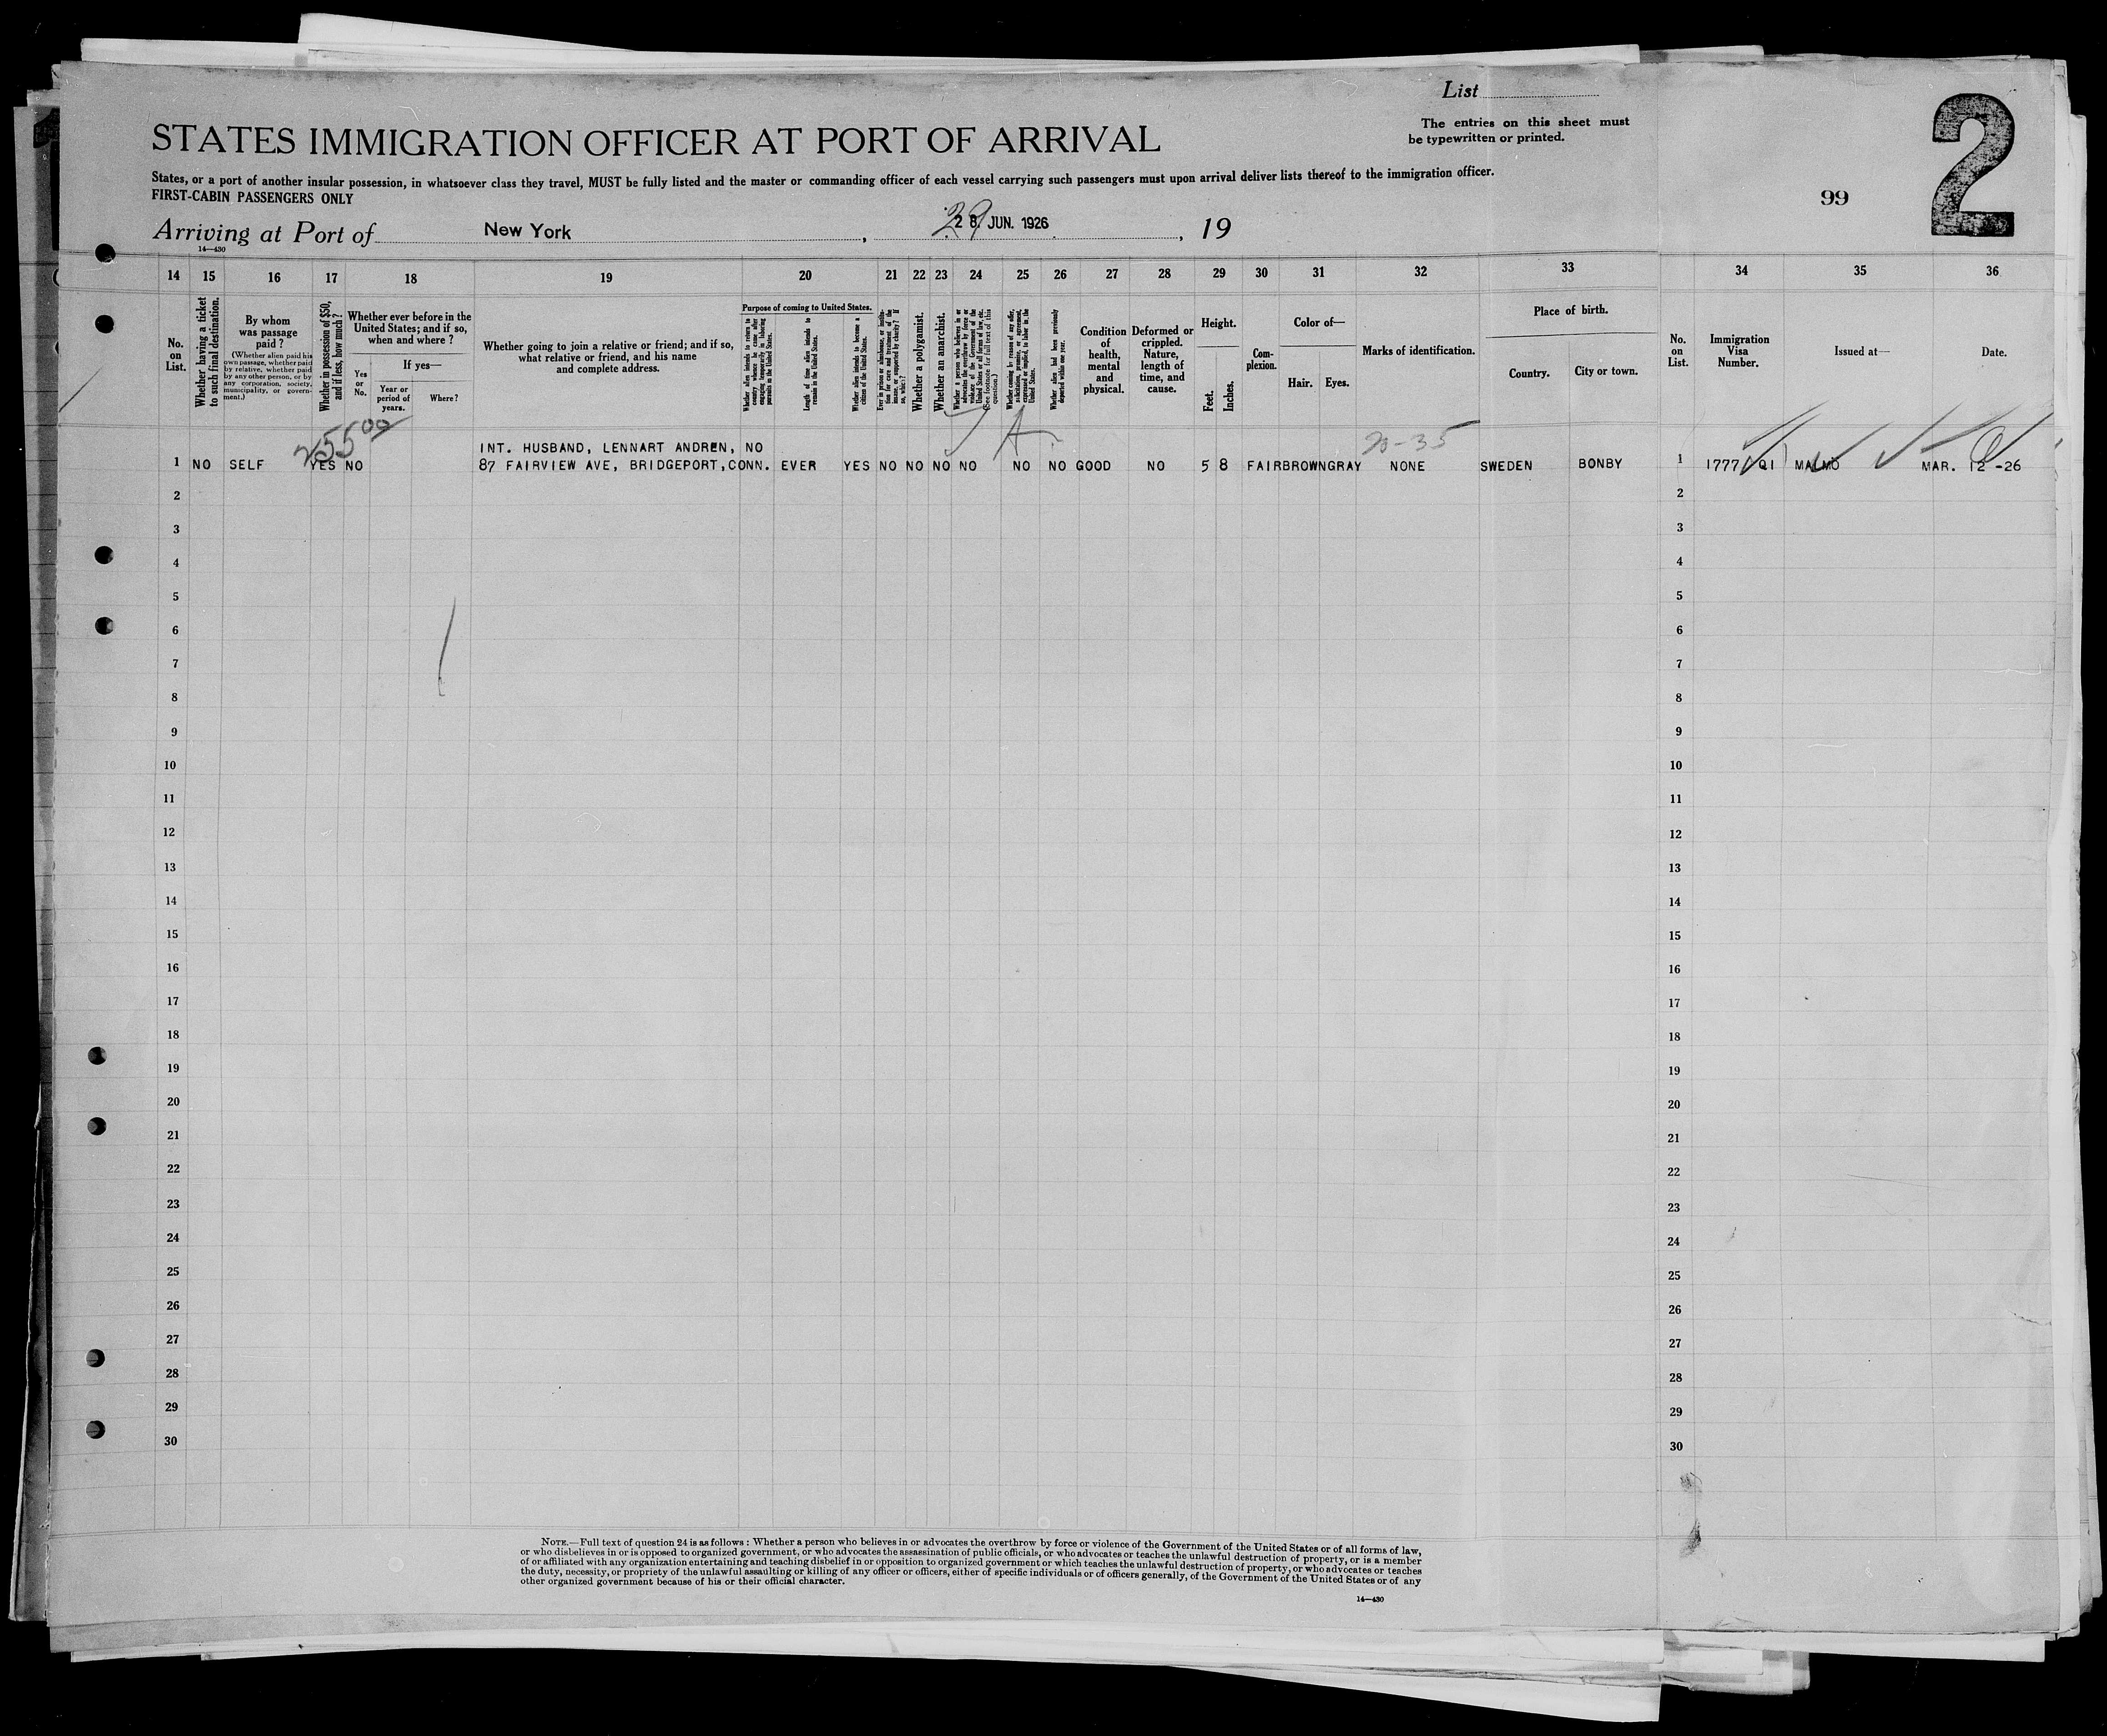 List
The entries on this sheet must
be typewritten or printed.
2
99
STATES IMMIGRATION OFFICER AT PORT OF ARRIVAL
States, or a port of another insular possession, in whatsoever class they travel, MUST be fully listed and the master or commanding officer of each vessel carrying such passengers must upon arrival deliver lists thereof to the immigration officer.
FIRST-CABIN PASSENGERS ONLY
Arriving at Port of New York, 29 28 JUN. 1926, 19
14—430
14 15 16 17 18 19 20 21 22 23 24 25 26 27 28 29 30 31 32 33 34 35 36
No. on List.
Whether having a ticket to such final destination.
By whom was passage paid?
(Whether alien paid his own passage, whether paid by relative, whether paid by any other person, or by any corporation, society, municipality, or government.)
Whether in possession of $50, and if less, how much?
Whether ever before in the United States; and if so, when and where?
Yes or No.
If yes—
Year or period of years.
Where?
Whether going to join a relative or friend; and if so, what relative or friend, and his name and complete address.
Purpose of coming to United States.
Whether alien intends to return to country whence he came after engaging temporarily in laboring pursuits in the United States.
Length of time alien intends to remain in the United States.
Whether alien intends to become a citizen of the United States.
Ever in prison or almshouse, or institution for care and treatment of the insane, or supported by charity? If so, which?
Whether a polygamist.
Whether an anarchist.
Whether a person who believes in or advocates the overthrow by force or violence of the Government of the United States or all forms of law, etc. (See footnote for full text of this question.)
Whether coming by reason of any offer, solicitation, promise, or agreement, expressed or implied, to labor in the United States.
Whether alien had been previously deported within one year.
Condition of health, mental and physical.
Deformed or crippled. Nature, length of time, and cause.
Height.
Feet.
Inches.
Complexion.
Color of—
Hair.
Eyes.
Marks of identification.
Place of birth.
Country.
City or town.
No. on List.
Immigration Visa Number.
Issued at—
Date.
255 00
20-35
INT. HUSBAND, LENNART ANDREN, NO
1 NO SELF YES NO 87 FAIRVIEW AVE, BRIDGEPORT, CONN. EVER YES NO NO NO NO NO NO GOOD NO 5 8 FAIR BROWN GRAY NONE SWEDEN BONBY 1 1777 QI MALMO MAR. 12 -26
2 2
3 3
4 4
5 5
6 6
7 7
8 8
9 9
10 10
11 11
12 12
13 13
14 14
15 15
16 16
17 17
18 18
19 19
20 20
21 21
22 22
23 23
24 24
25 25
26 26
27 27
28 28
29 29
30 30
NOTE.—Full text of question 24 is as follows: Whether a person who believes in or advocates the overthrow by force or violence of the Government of the United States or of all forms of law,
or who disbelieves in or is opposed to organized government, or who advocates the assassination of public officials, or who advocates or teaches the unlawful destruction of property, or is a member
of or affiliated with any organization entertaining and teaching disbelief in or opposition to organized government or which teaches the unlawful destruction of property, or who advocates or teaches
the duty, necessity, or propriety of the unlawful assaulting or killing of any officer or officers, either of specific individuals or of officers generally, of the Government of the United States or of any
other organized government because of his or their official character.
14—430